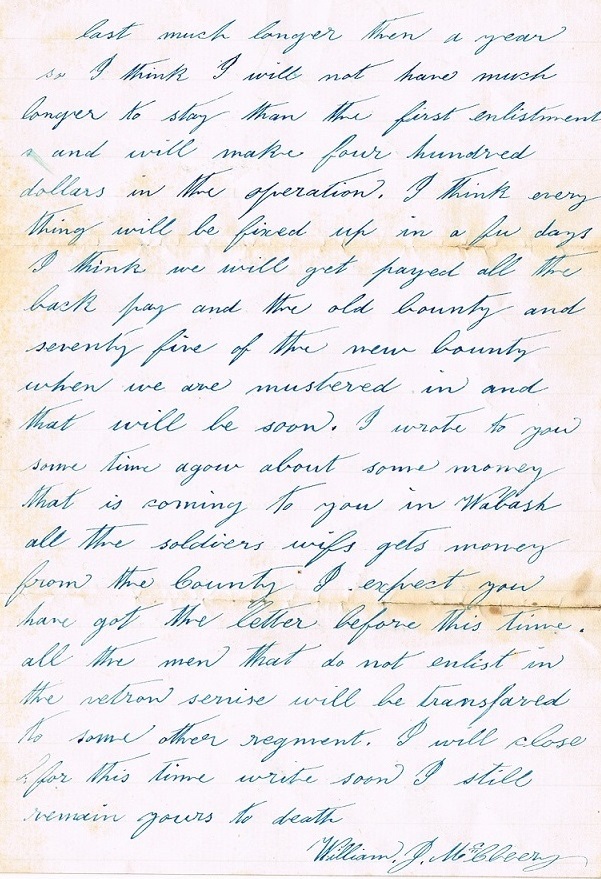 last much longer then a year
so I think I will not have much
longer to stay than the first enlistment
and will make four hundred
dollars in the operation. I think every
thing will be fixed up in a fu days
I think we will get payed all the
back pay and the old bounty and
seventy five of the new bounty
when we are mustered in and
that will be soon. I wrote to you
some time agow about some money
that is coming to you in Wabash
all the soldiers wifs gets money
from the County I expect you
have got the letter before this time.
all the men that do not enlist in
the vetron servise will be transfared
to some other regment. I will close
for this time write soon I still
remain yours to death
William. J.